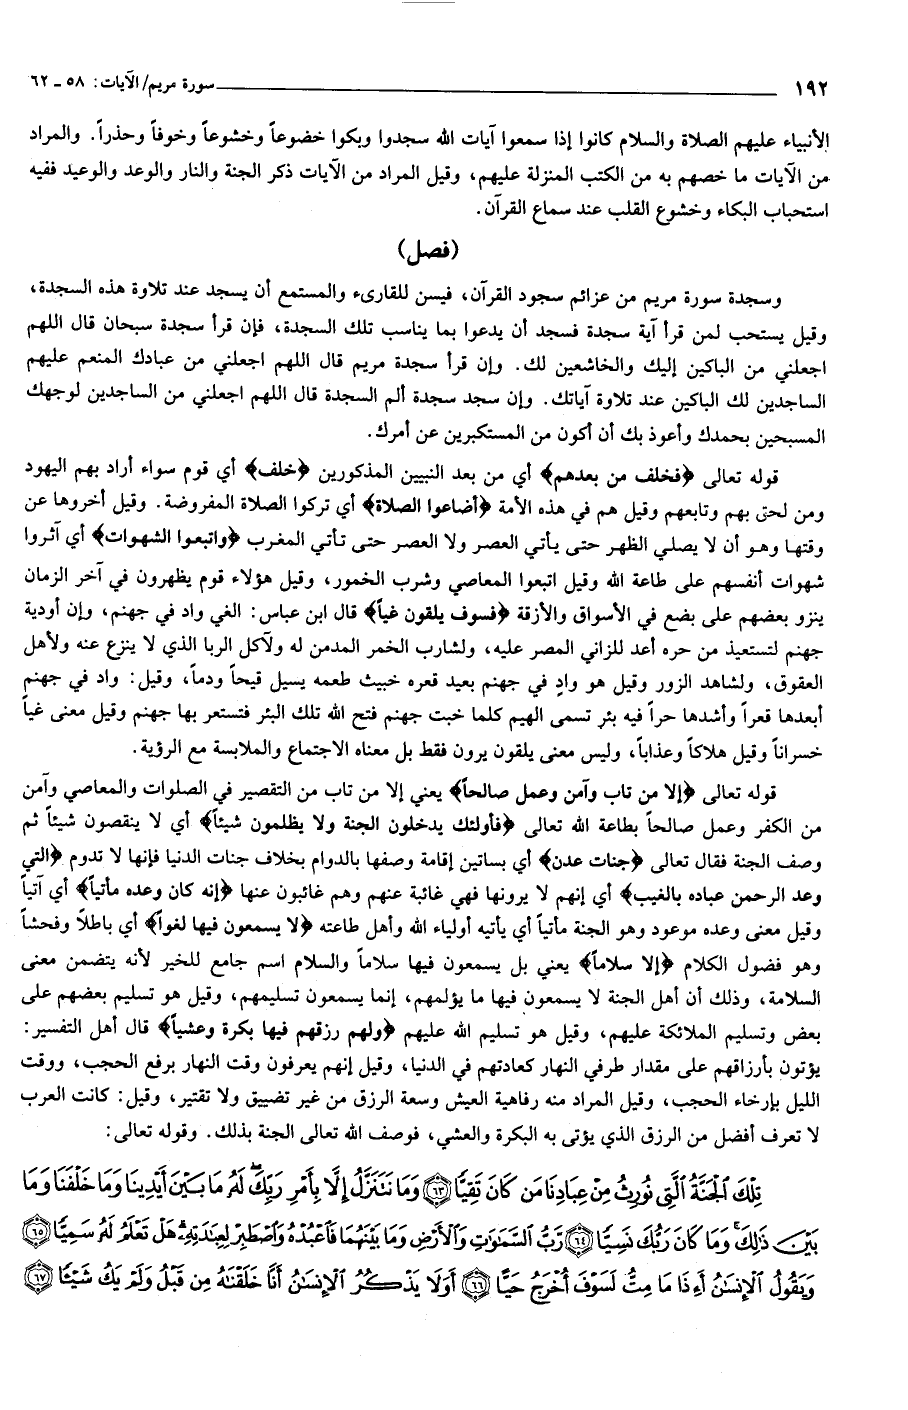 ١٩٢ سورة مريم/ الآيات: ٥٨ ـ ٦٢
الأنبياء عليهم الصلاة والسلام كانوا إذا سمعوا آيات الله سجدوا وبكوا خضوعاً وخشوعاً وخوفاً وحذراً. والمراد
من الآيات ما خصهم به من الكتب المنزلة عليهم، وقيل المراد من الآيات ذكر الجنة والنار والوعد والوعيد ففيه
استحباب البكاء وخشوع القلب عند سماع القرآن.
(فصل)
وسجدة سورة مريم من عزائم سجود القرآن، فيسن للقارىء والمستمع أن يسجد عند تلاوة هذه السجدة،
وقيل يستحب لمن قرأ آية سجدة فسجد أن يدعوا بما يناسب تلك السجدة، فإن قرأ سجدة سبحان قال اللهم
اجعلني من الباكين إليك والخاشعين لك. وإن قرأ سجدة مريم قال اللهم اجعلني من عبادك المنعم عليهم
الساجدين لك الباكين عند تلاوة آياتك. وإن سجد سجدة ألم السجدة قال اللهم اجعلني من الساجدين لوجهك
المسبحين بحمدك وأعوذ بك أن أكون من المستكبرين عن أمرك.
قوله تعالى ﴿فخلف من بعدهم﴾ أي من بعد النبيين المذكورين ﴿خلف﴾ أي قوم سواء أراد بهم اليهود
ومن لحق بهم وتابعهم وقيل هم في هذه الأمة ﴿أضاعوا الصلاة﴾ أي تركوا الصلاة المفروضة. وقيل أخروها عن
وقتها وهو أن لا يصلي الظهر حتى يأتي العصر ولا العصر حتى تأتي المغرب ﴿واتبعوا الشهوات﴾ أي آثروا
شهوات أنفسهم على طاعة الله وقيل اتبعوا المعاصي وشرب الخمور، وقيل هؤلاء قوم يظهرون في آخر الزمان
ينزو بعضهم على بضع في الأسواق والأزقة ﴿فسوف يلقون غياً﴾ قال ابن عباس: الغي واد في جهنم، وإن أودية
جهنم لتستعيذ من حره أعد للزاني المصر عليه، ولشارب الخمر المدمن له ولآكل الربا الذي لا ينزع عنه ولأهل
العقوق، ولشاهد الزور وقيل هو وادٍ في جهنم بعيد قعره خبيث طعمه يسيل قيحاً ودماً، وقيل: واد في جهنم
أبعدها قعراً وأشدها حراً فيه بئر تسمى الهيم كلما خبت جهنم فتح الله تلك البئر فتستعر بها جهنم وقيل معنى غياً
خسراناً وقيل هلاكاً وعذاباً، وليس معنى يلقون يرون فقط بل معناه الاجتماع والملابسة مع الرؤية.
قوله تعالى ﴿إلا من تاب وآمن وعمل صالحاً﴾ يعني إلا من تاب من التقصير في الصلوات والمعاصي وآمن
من الكفر وعمل صالحاً بطاعة الله تعالى ﴿فأولئك يدخلون الجنة ولا يظلمون شيئاً﴾ أي لا ينقصون شيئاً ثم
وصف الجنة فقال تعالى ﴿جنات عدن﴾ أي بساتين إقامة وصفها بالدوام بخلاف جنات الدنيا فإنها لا تدوم ﴿التي
وعد الرحمن عباده بالغيب﴾ أي إنهم لا يرونها فهي غائبة عنهم وهم غائبون عنها ﴿إنه كان وعده مأتياً﴾ أي آتياً
وقيل معنى وعده موعود وهو الجنة مأتياً أي يأتيه أولياء الله وأهل طاعته ﴿لا يسمعون فيها لغواً﴾ أي باطلاً وفحشاً
وهو فضول الكلام ﴿إلا سلاماً﴾ يعني بل يسمعون فيها سلاماً والسلام اسم جامع للخير لأنه يتضمن معنى
السلامة، وذلك أن أهل الجنة لا يسمعون فيها ما يؤلمهم، إنما يسمعون تسليمهم، وقيل هو تسليم بعضهم على
بعض وتسليم الملائكة عليهم، وقيل هو تسليم الله عليهم ﴿ولهم رزقهم فيها بكرة وعشياً﴾ قال أهل التفسير:
يؤتون بأرزاقهم على مقدار طرفي النهار كعادتهم في الدنيا، وقيل إنهم يعرفون وقت النهار برفع الحجب، ووقت
الليل بإرخاء الحجب، وقيل المراد منه رفاهية العيش وسعة الرزق من غير تضييق ولا تقتير، وقيل: كانت العرب
لا تعرف أفضل من الرزق الذي يؤتى به البكرة والعشي، فوصف الله تعالى الجنة بذلك. وقوله تعالى:
تِلْكَ ٱلْجَنَّةُ ٱلَّتِى نُورِثُ مِنْ عِبَادِنَا مَن كَانَ تَقِيًّا ﴿٦٣﴾ وَمَا نَتَنَزَّلُ إِلَّا بِأَمْرِ رَبِّكَ لَهُۥ مَا بَيْنَ أَيْدِينَا وَمَا خَلْفَنَا وَمَا
بَيْنَ ذَٰلِكَ وَمَا كَانَ رَبُّكَ نَسِيًّا ﴿٦٤﴾ رَّبُّ ٱلسَّمَٰوَٰتِ وَٱلْأَرْضِ وَمَا بَيْنَهُمَا فَٱعْبُدْهُ وَٱصْطَبِرْ لِعِبَٰدَتِهِۦ هَلْ تَعْلَمُ لَهُۥ سَمِيًّا ﴿٦٥﴾
وَيَقُولُ ٱلْإِنسَٰنُ أَءِذَا مَا مِتُّ لَسَوْفَ أُخْرَجُ حَيًّا ﴿٦٦﴾ أَوَلَا يَذْكُرُ ٱلْإِنسَٰنُ أَنَّا خَلَقْنَٰهُ مِن قَبْلُ وَلَمْ يَكُ شَيْـًٔا ﴿٦٧﴾